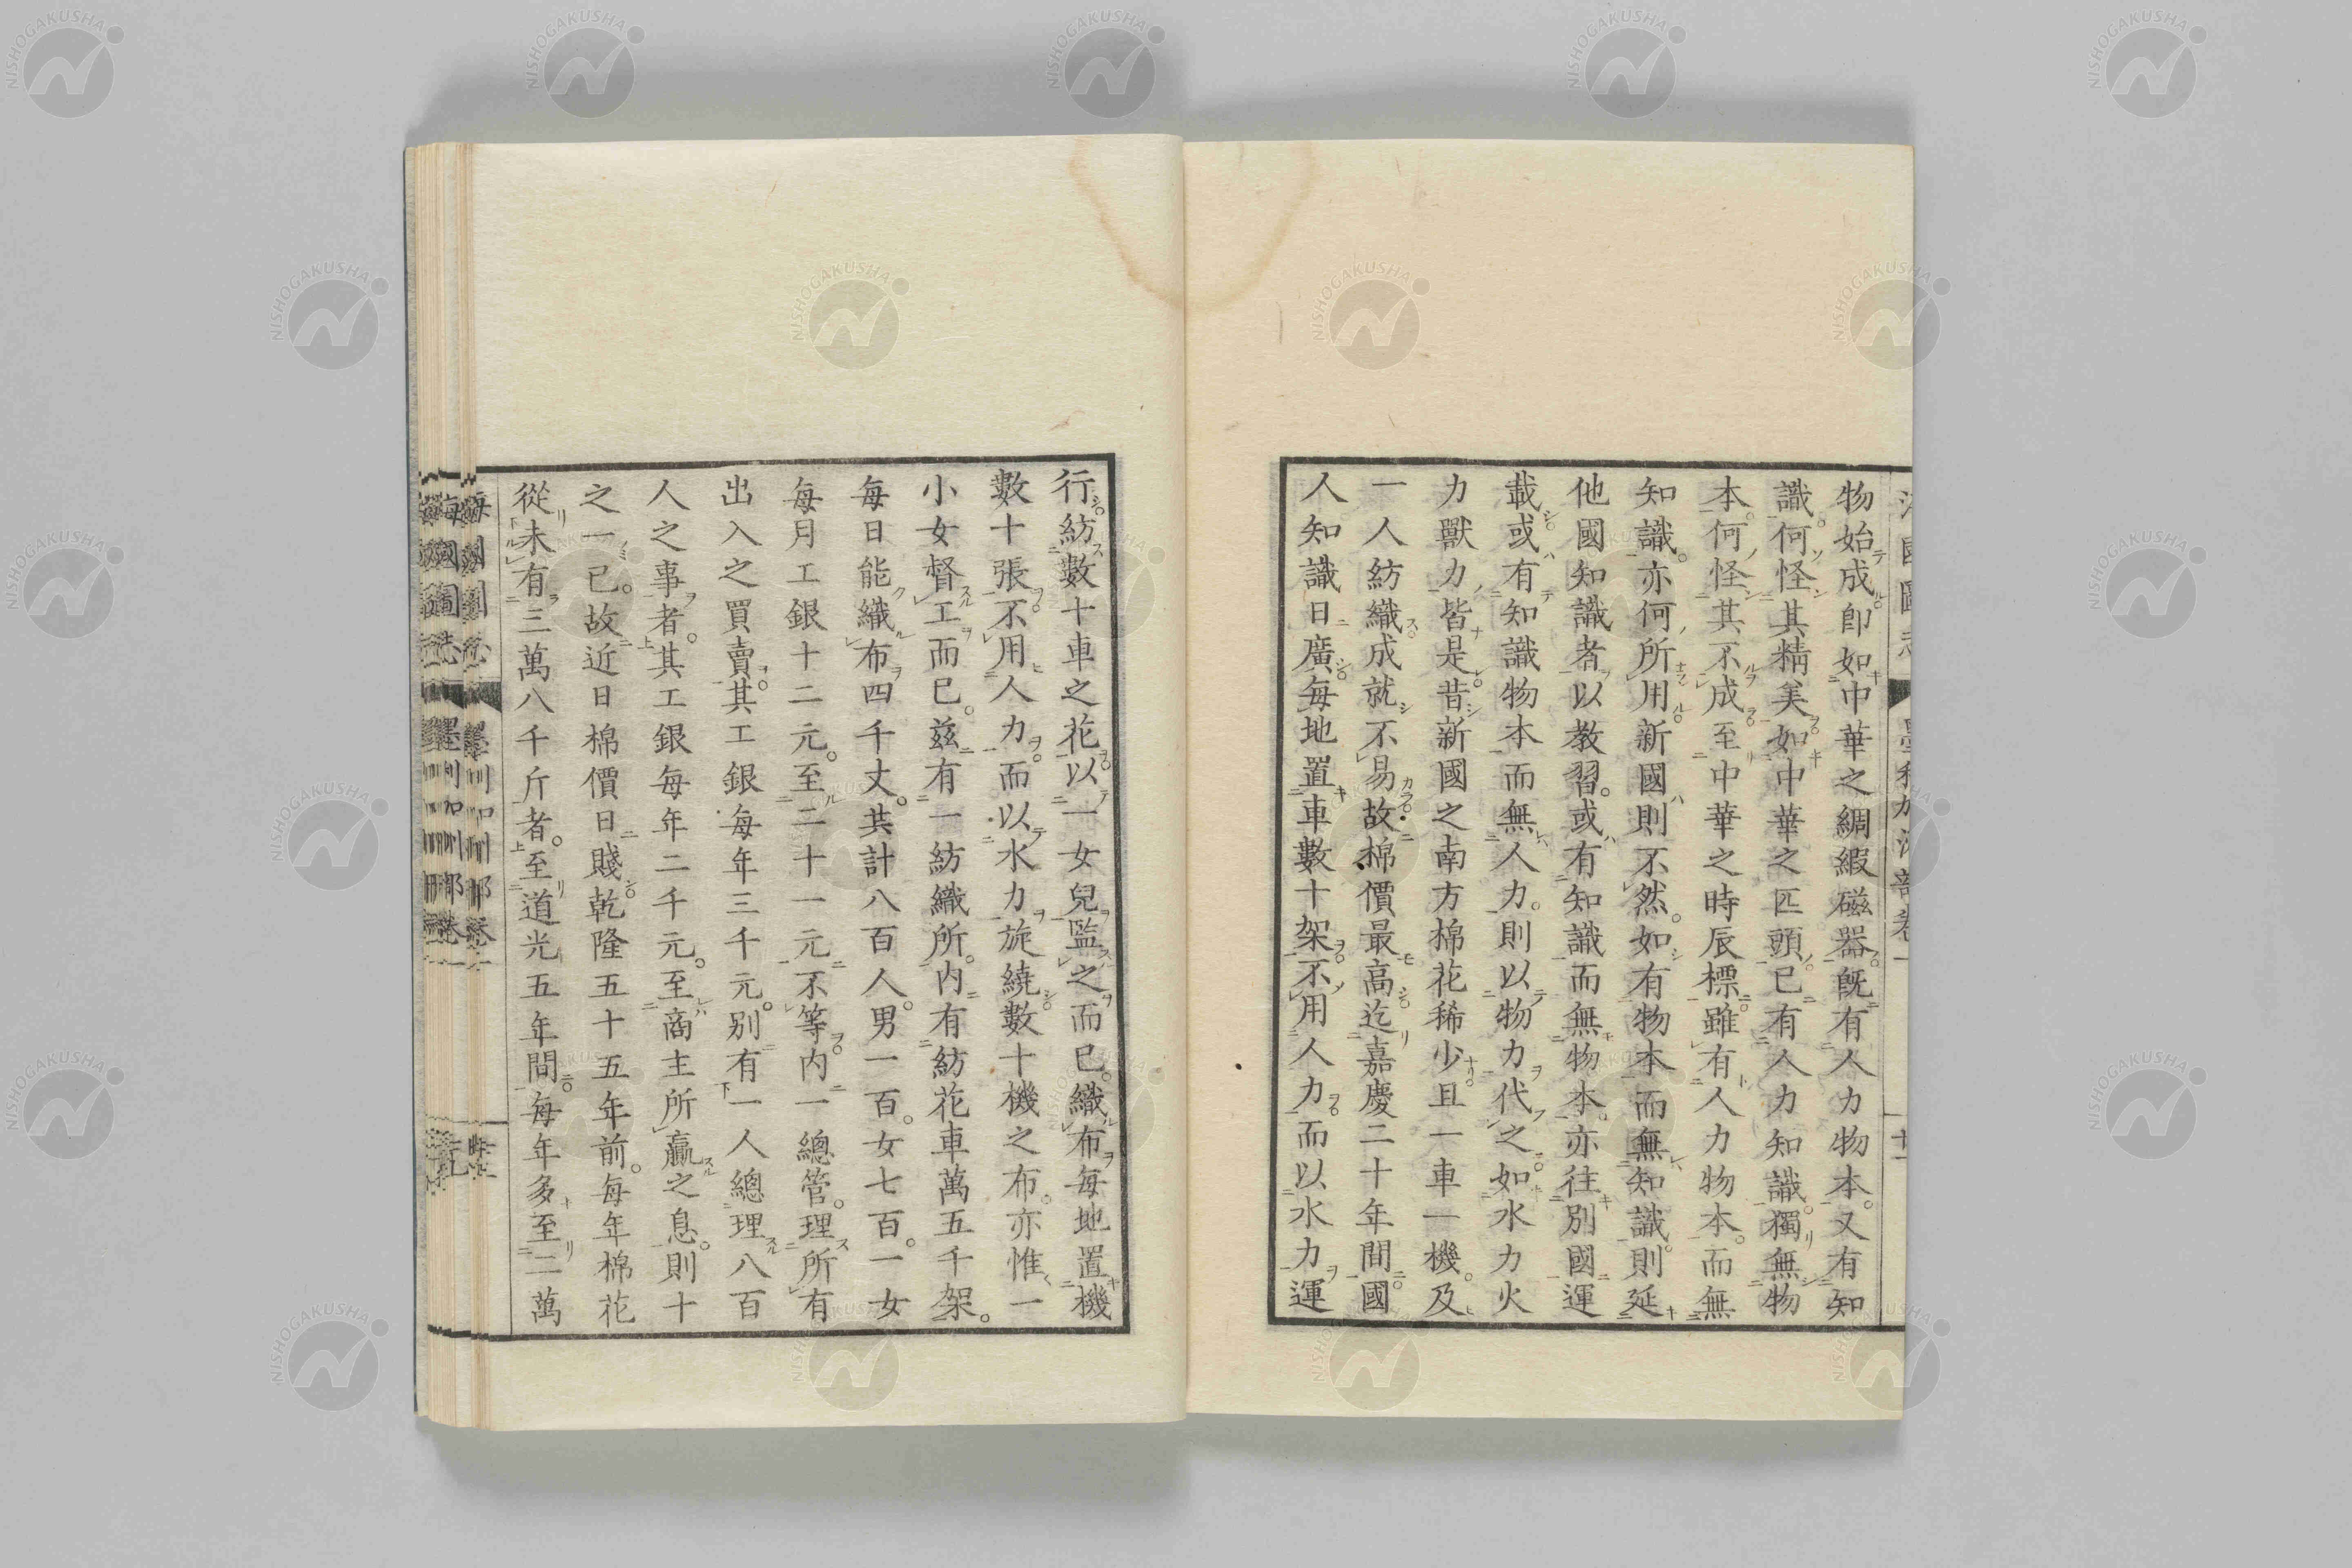 物始成卽如中華之綢緞磁器旣有人力物本。又有知
識。何怪其精美如中華之匹頭已有人力知識。獨無物
本。何怪其不成至中華之時辰標雖有人力物本。而無
知識。亦何所用新國則不然。如有物本而無知識。則延
他國知識者以教習。或有知識而無物本。亦往別國運
載或有知識物本而無人力。則以物力代之如水力火
力獸力皆是昔新國之南方棉花稀少且一車一機。及
一人紡織成就不易故棉價最高迄嘉慶二十年間國
人知識日廣每地置車數十架不用人力而以水力運
行紡數十車之花以一女兒監之而已。織布每地置機
數十張不用人力而以水力旋繞數十機之布。亦惟一
小女督工而已。茲有一紡織所。內有紡花車萬五千架。
每日能織布四千丈。共計八百人。男一百。女七百。一女
每月工銀十二元。至二十一元不等內一總管。理所有
出入之買賣其工銀每年三千元。別有一人總理八百
人之事者。其工銀每年二千元。至商主所贏之息。則十
之一已。故近日棉價日賤乾隆五十五年前。每年棉花
從未有三萬八千斤者。至道光五年間每年多至二萬